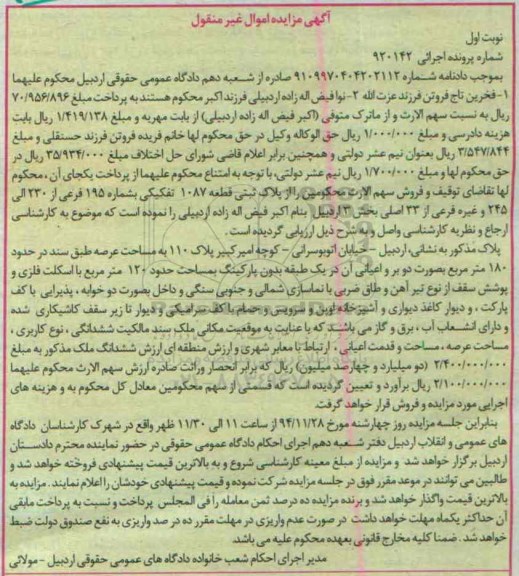 آگهی مزایده اموال غیر منقول
نوبت اول
شماره پرونده اجرائی ۹۲۰۱۴۲
بموجب دادنامه شماره ۹۱۰۹۹۷۰۴۰۴۲۰۲۱۱۲ صادره از شعبه دهم دادگاه عمومی حقوقی اردبیل محکوم علیهما
۱-فخرین تاج فروتن فرزند عزت الله ۲- نوا فیض اله زاده اردبیلی فرزند اکبر محکوم هستند به پرداخت مبلغ ۷۰/۹۵۶/۸۹۶
ریال به نسبت سهم الارث و از ماترک متوفی (اکبر فیض اله زاده اردبیلی) از بابت مهریه و مبلغ ۱/۴۱۹/۱۳۸ ریال بابت
هزینه دادرسی و مبلغ ۱/۰۰۰/۰۰۰ ریال حق الوکاله وکیل در حق محکوم لها خانم فریده فروتن فرزند حسنقلی و مبلغ
۳/۵۴۷/۸۴۴ ریال بعنوان نیم عشر دولتی و همچنین برابر اعلام قاضی شورای حل اختلاف مبلغ ۳۵/۹۳۴/۰۰۰ ریال در
حق محکوم لها و مبلغ ۱/۷۰۰/۰۰۰ ریال نیم عشر دولتی، با توجه به امتناع محکوم علیهما از پرداخت یکجای آن، محکوم
لها تقاضای توقیف و فروش سهم الارث محکومین را از پلاک ثبتی قطعه ۱۰۸۷ تفکیکی بشماره ۱۹۵ فرعی از ۲۳۰ الی
۲۴۵ و غیره فرعی از ۲۳ اصلی بخش ۳ اردبیل بنام اکبر فیض اله زاده اردبیلی را نموده است که موضوع به کارشناسی
ارجاع و نظریه کارشناسی واصل و به شرح ذیل ارزیابی گردیده است.
پلاک مذکور به نشانی، اردبیل – خیابان اتوبوسرانی – کوچه امیر کبیر پلاک ۱۱۰ به مساحت عرصه طبق سند در حدود
۱۸۰ متر مربع بصورت دو بر و اعیانی آن در یک طبقه بدون پارکینگ بمساحت حدود ۱۲۰ متر مربع با اسکلت فلزی و
پوشش سقف از نوع تیر آهن و طاق ضربی با نماسازی شمالی و جنوبی سنگی و داخل بصورت دو خوابه، پذیرایی با کف
پارکت، و دیوار کاغذ دیواری و آشپزخانه اوپن و سرویس و حمام با کف سرامیکی و دیوار تا زیر سقف کاشیکاری شده
و دارای انشعاب آب، برق و گاز می باشد که با عنایت به موقعیت مکانی ملک سند مالکیت ششدانگی، نوع کاربری،
مساحت عرصه، مساحت و قدمت اعیانی، ارتباط تا معابر شهری و ارزش منطقه ای ارزش ششدانگ ملک مذکور به مبلغ
۲/۴۰۰/۰۰۰/۰۰۰ (دو میلیارد و چهارصد میلیون) ریال که برابر انحصار وراثت صادره ارزش سهم الارث محکوم علیهما
۲/۱۰۰/۰۰۰/۰۰۰ ریال برآورد و تعیین گردیده است که قسمتی از سهم محکومین معادل کل محکوم به و هزینه های
اجرایی مورد مزایده و فروش قرار خواهد گرفت.
بنابراین جلسه مزایده روز چهارشنبه مورخ ۹۴/۱۱/۲۸ از ساعت ۱۱ الی ۱۱/۳۰ ظهر واقع در شهرک کارشناسان دادگاه
های عمومی و انقلاب اردبیل دفتر شعبه دهم اجرای احکام دادگاه عمومی حقوقی در حضور نماینده محترم دادستان
اردبیل برگزار خواهد شد و مزایده از مبلغ معینه کارشناسی شروع و به بالاترین قیمت پیشنهادی فروخته خواهد شد و
طالبین می توانند در موعد مقرر فوق در جلسه مزایده شرکت نموده و قیمت پیشنهادی خودشان را اعلام نمایند. مزایده به
بالاترین قیمت واگذار خواهد شد و برنده مزایده ده درصد ثمن معامله را فی المجلس پرداخت و نسبت به پرداخت مابقی
آن حداکثر یکماه مهلت خواهد داشت در صورت عدم واریزی در مهلت مقرر ده در صد واریزی به نفع صندوق دولت ضبط
خواهد شد. ضمنا کلیه مخارج قانونی بعهده محکوم علیه می باشد.
مدیر اجرای احکام شعب خانواده دادگاه های عمومی حقوقی اردبیل – مولائی